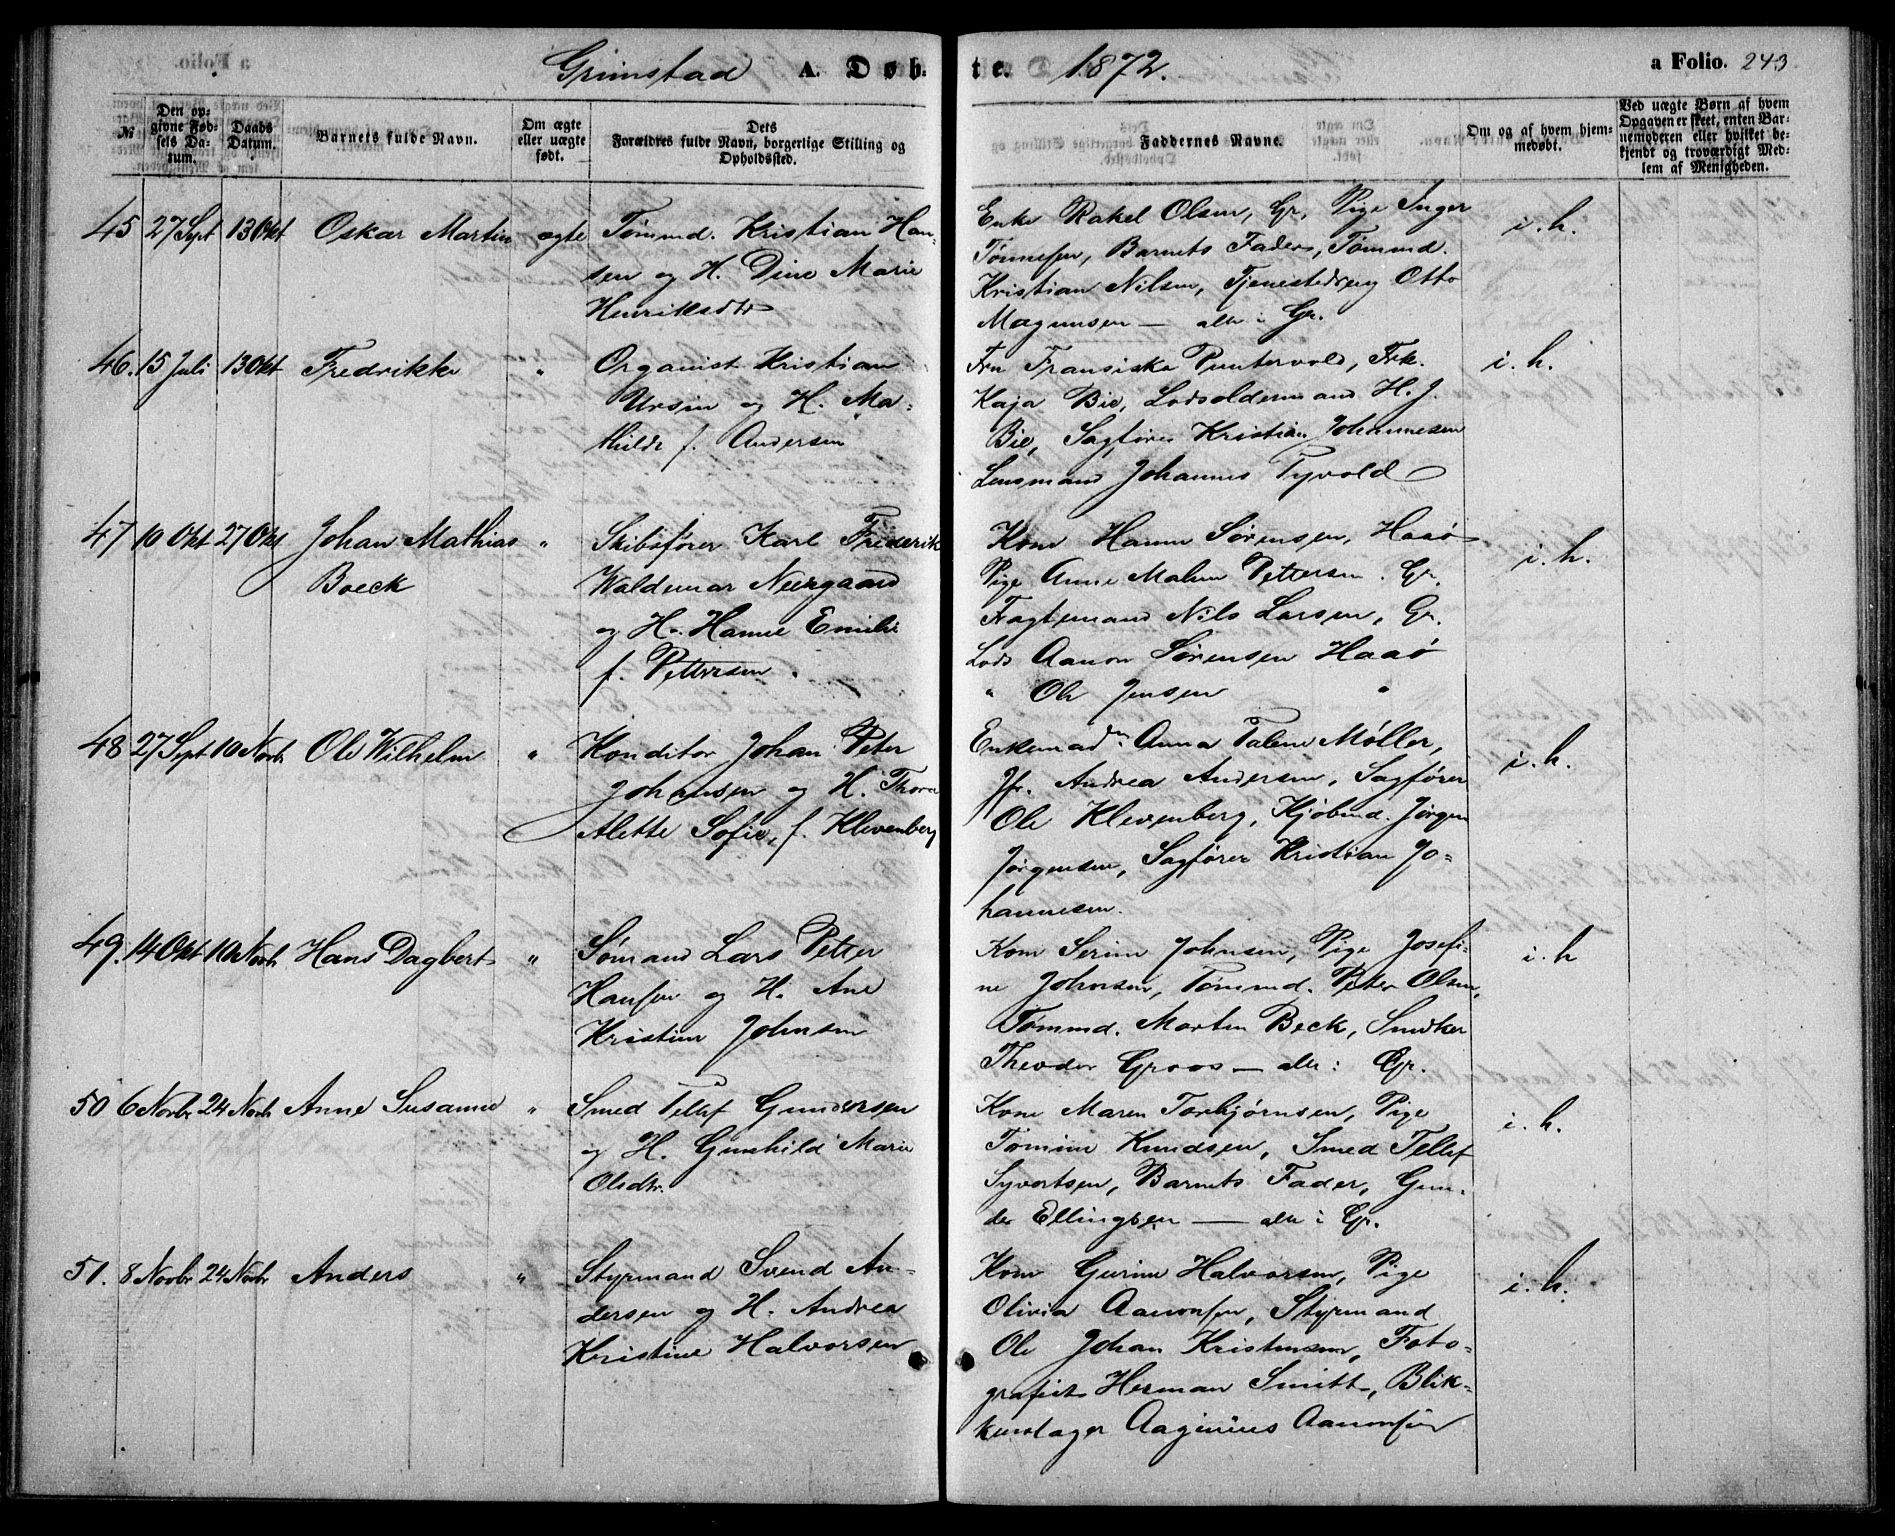 Grimstad A. Døb- te. 1872. a Folio. 243
№
Den op-
givne Fød-
sels Da-
tum.
Daabs
Datum.
Barnets fulde Navn.
Om ægte
eller uægte
født.
Dets
Forældres fulde Navn, borgerlige Stilling og
Opholdssted.
Faddernes Navne.
Om og af hvem hjem-
medøbt.
Ved uægte Børn af hvem
Opgaven er skeet, enten Bar-
nemoderen eller hvilket be-
kjendt og troværdigt Med-
lem af Menigheden.
45 27 Sept 13 Okt Oskar Martin ægte Tømmd. Kristian Han-
sen og H. Dine Marie
Henriksdtr
Enke Rakel Olsen, Gr, Pige Inger
Tønnesen, Barnets Fader, Tømmd.
Kristian Nilsen, Tjenestedreng Otto
Magnusen — alle i Gr.
i. h.
46. 15 Juli 13 Okt Fredrikke " Organist Kristian
Ursin og H. Ma-
thilde f. Andersen
Fru Fransiska Puntervold, Frk.
Kaja Bie, Lodsoldermand H. J.
Bie, Sagfører Kristian Johannesen
Lensmand Johannes Tyvold
i. h.
47 10 Okt 27 Okt Johan Mathias "
Boeck
Skibsfører Karl Frederik
Waldemar Neergaard
og H. Hanne Emilie
f. Pettersen.
Kone Hanne Sørensen, Haaø
Pige Anne Malene Pettersen. Gr.
Fragtemand Nils Larsen, Gr.
Lods Aanon Sørensen Haaø
" Ole Jensen "
i. h.
48 27 Sept 10 Novbr Ole Wilhelm " Konditor Johan Peter
Johansen og H. Thora
Alette Sofie, f. Klevenberg
Enkemadm Anna Talene Møller,
Jfr. Andrea Andersen, Sagfører
Ole Klevenberg, Kjøbmd. Jørgen
Jørgensen, Sagfører Kristian Jo-
hannesen.
i. h.
49. 14 Okt 10 Novbr Hans Dagbert " Sømand Lars Petter
Hansen og H. Ane
Kristine Johnsen
Kone Serine Johnsen, Pige Josefi-
ne Johnsen, Tømmd. Peter Olsen,
Tømmd. Morten Beck, Snedker
Theodor Groos — alle i Gr.
i. h
50 6 Novbr 24 Novbr Anne Susanne " Smed Tellef Gundersen
og H. Gunhild Marie
Olsdtr.
Kone Maren Torbjørnsen, Pige
Tomine Knudsen, Smed Tellef
Syvertsen, Barnets Fader, Gun-
der Ellingsen — alle i Gr.
i. h.
51. 8 Novbr 24 Novbr Anders " Styrmand Svend An-
dersen og H. Andrea
Kristine Halvorsen
Kone Gurine Halvorsen, Pige
Olivia Aanonsen, Styrmand
Ole Johan Kristensen, Foto-
grafist Herman Smitt, Blik-
kenslager Aaginius Aanonsen
i. h.